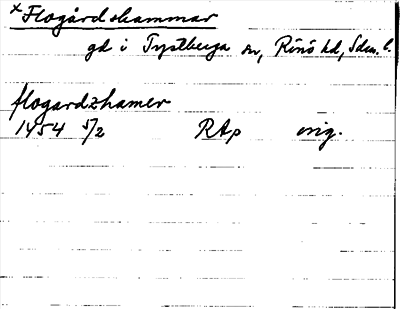 × Flogårdshammar
gd i Tystberga sn, Rönö hd, Sdm. l.
flogardzhamer
1454 5/2 RAp orig.